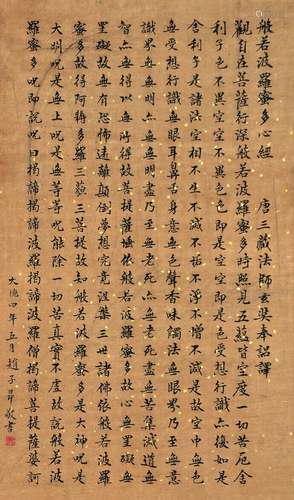 般若波羅蜜多心經　唐三藏法師玄奘奉詔譯
觀自在菩薩行深般若波羅蜜多時照見五蘊皆空度一切苦厄舍
利子色不異空空不異色色即是空空即是色受想行識亦復如是
舍利子是諸法空相不生不滅不垢不淨不增不減是故空中無色
無受想行識無眼耳鼻舌身意無色聲香味觸法無眼界乃至無意
識界無無明亦無無明盡乃至無老死亦無老死盡無苦集滅道無
智亦無得以無所得故菩提薩埵依般若波羅蜜多故心無罣礙無
罣礙故無有恐怖遠離顛倒夢想究竟涅槃三世諸佛依般若波羅
蜜多故得阿耨多羅三藐三菩提故知般若波羅蜜多是大神咒是
大明咒是無上咒是無等等咒能除一切苦真實不虛故說般若波
羅蜜多咒即說咒曰揭諦揭諦波羅揭諦波羅僧揭諦菩提薩婆訶
大德年五月趙子昂敬書